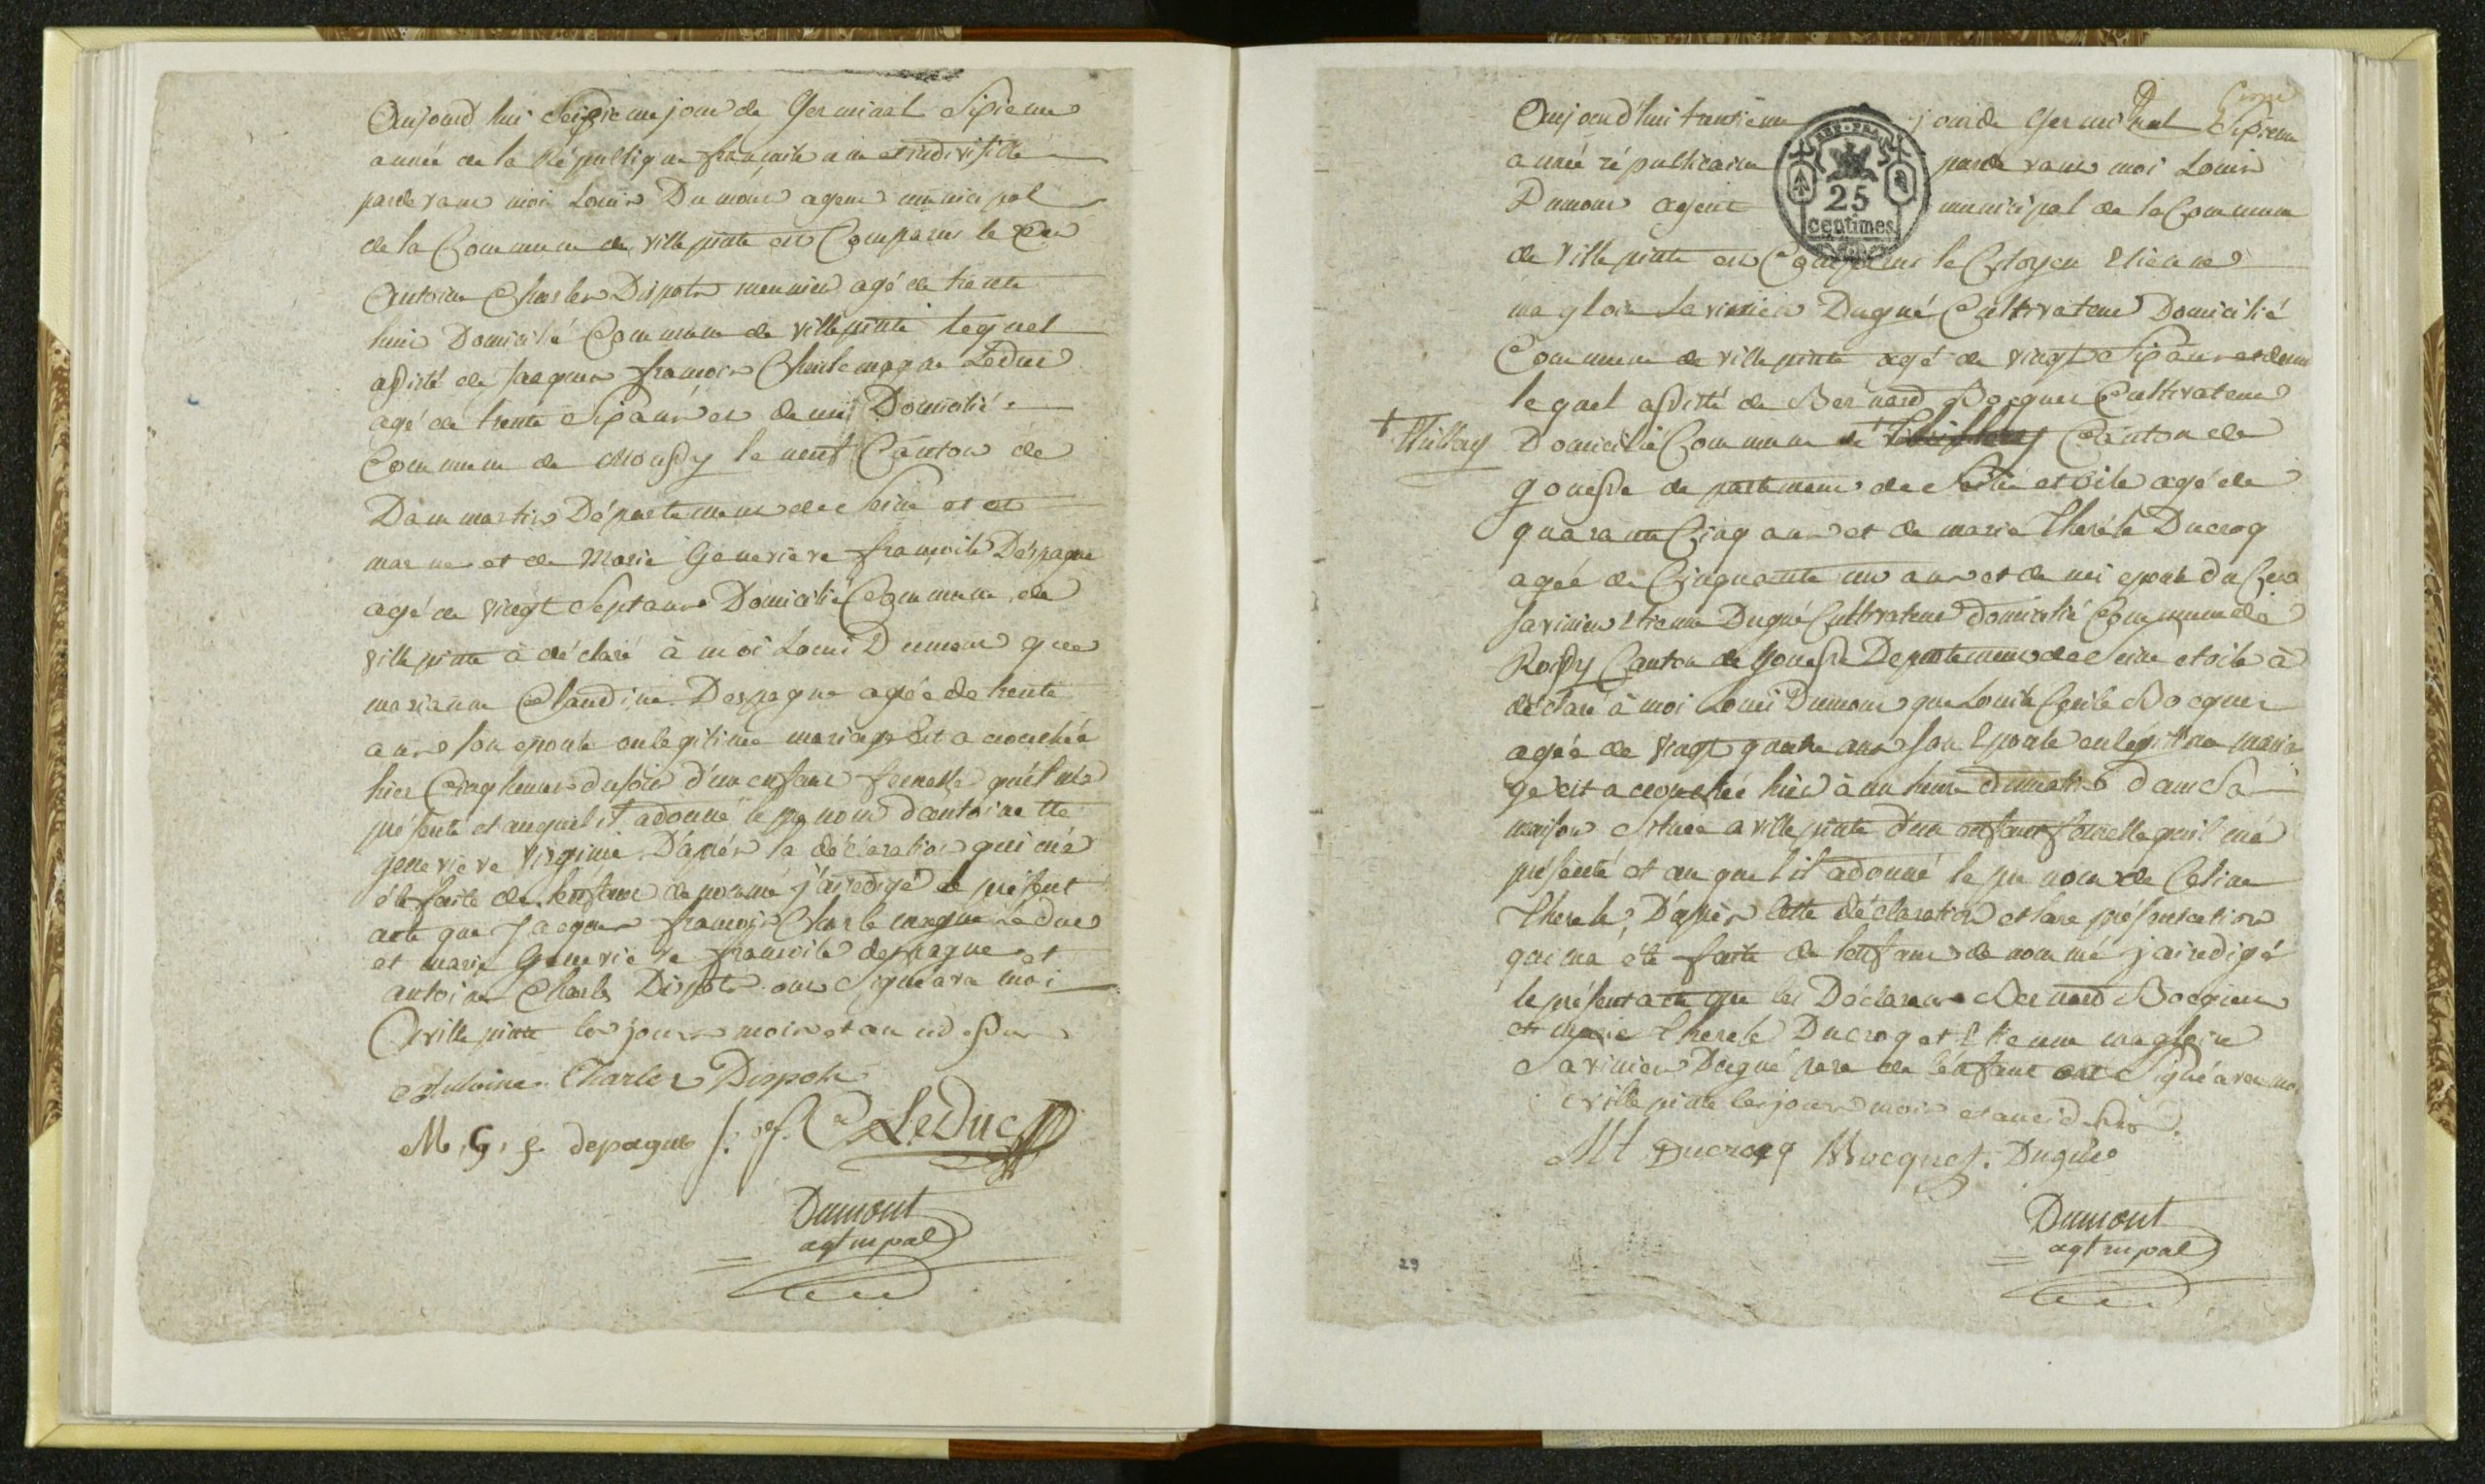 Aujourd hui Seizieme jour de Germinal Sixieme
année de la République française une et indivisible
pardevant moi Louis Dumont agent municipal
de la Commune de ville pinte est Comparus le Cen
Antoine Charles Dispots meunier agé de trente
huit Domicilié Commune de villepinte lequel
assisté de Jacques françois Charlemagne Leduc
agé de trente Six ans et demi Domicilié
Commune de Moussy le neuf Canton de
Dammartin Département de Seine et
marne et de Marie Genevieve françoise Despagne
agé de vingt Sept ans Domicilié Commune de
ville pinte à déclaré à moi Louis Dumont que
marianne Claudine Despagne agée de trente
ans son epouse en legitime mariage Est acouchée
hier Cinq heures du soir d'un enfant femelle qu'il m'a
présenté et auquel il a donné le pre nom d'antoinette
genevieve Virginie. D'après la déclaration qui m'a
été faite de l'enfant de nommé j'ai redigé le présent
acte que Jacques françois Charlemagne Leduc
et marie Genevieve françoise despagne et
antoine Charles Dispots ont Signé avec moi
A ville pinte les jours mois et an cid essus
Antoine Charles Dispots
M, G, f depagne J. f. C LeDuc
Dumont
agt mpal
Aujourd'hui trentieme jour de Germinal Sixieme
année républicaine pardevant moi Louis
25
centimes
Dumont agent municipal de la Commune
de Ville pinte est Comparus le Citoyen Etienne
magloire Savinien Dugué Cultivateur Domicilié
Commune de ville pinte agé de vingt Six ans et demi
lequel assisté de Bernard Bocquet Cultivateur
+ Thillay
Domicilié Commune de Canton de
gonesse departement de Seine et oise agé de
quarante Cinq ans et de marie Therése Ducrocq
agée de Cinquante un ans et demi epouse du Cen
Savinien Etienne Dugué Cultivateur domicilié Commune de
Roissy Canton de Gonesse Departement de Seine et oise à
déclaré à moi Louis Dumont que Louise Cecile Bocquet
agée de vingt quatre ans son Epouse en légitime maria
ge est acouchée hier à un heure du matin dans Sa
maison Située a ville pinte d'un enfant femelle qu'il m'a
présenté et au quel il adonné le pre nom de Celine
Therese, D'après Cette déclaration et la re présentation
qui m'a été faite de l'enfant de nommé j'ai redigé
le présent acte que les Déclarans Bernard Bocquet
et Marie Therese Ducrocq et Etienne magloire
Savinien Dugué pere de l'enfant ont Signé avec moi
a ville pinte les jours mois et an cid essus.
M t Ducrocq Bocquet. Dugué
Dumont
agt mpal
29